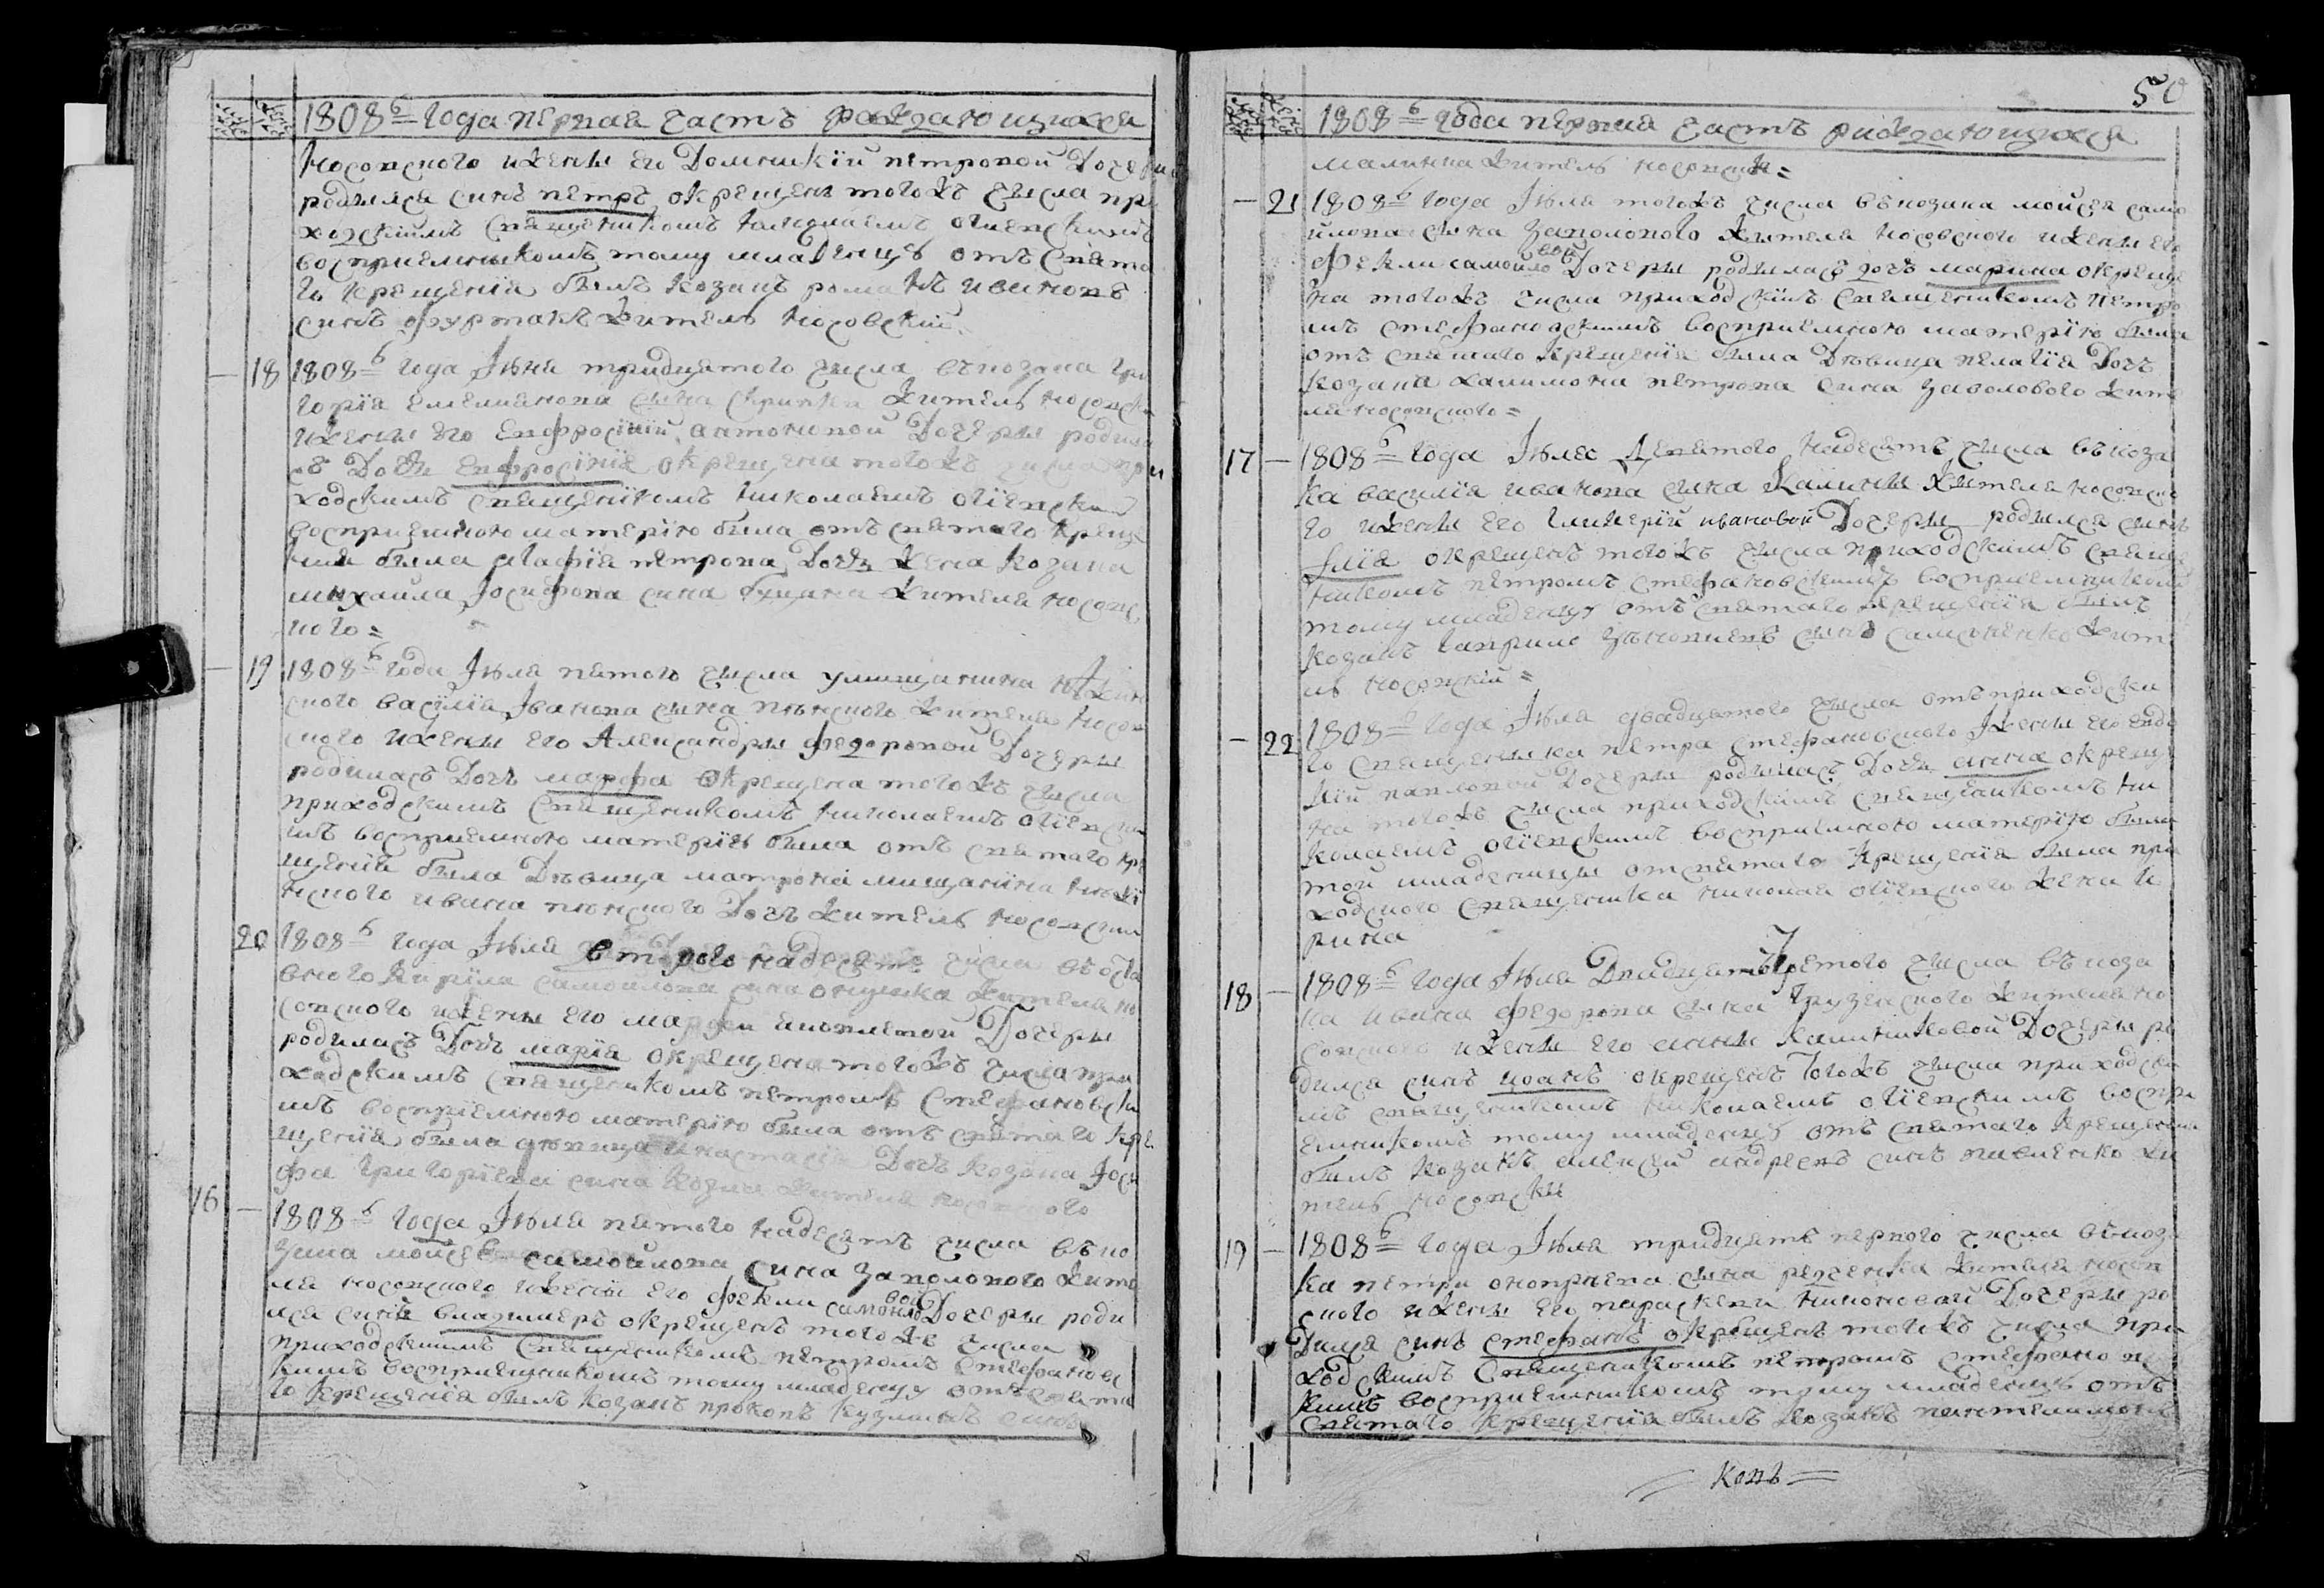 1808г года первая часть раждающихся
Носовского и жены его Домникіи петровой Дочери
родился синъ петръ окрещенъ того жъ числа при
ходскимъ священикомъ Николаемъ огіевскимъ
восприемникомъ тому младенцу отъ свята
го крещенія былъ козакъ романъ ивановъ
синъ фуртакъ житель носовскій
18 1808г года Іюня тридцятого числа въ козака гри
горія емелианова сына скрипки житель носовск
и жены его Евфросініи антоновой Дочеры родила
съ Дочъ Евфросінія окрещена того жъ числа при
ходскимъ священікомъ николаемъ огіевским
восприемною матерію была отъ святаго креще
нія была агафія петрова Дочъ жена козака
михаила Іосифова сина жителя носовс
кого =
19 1808г года Іюля пятого числа у мищанина Нѣжин
ского василія Іванова сына жителя носов
ского и жены его Александры федоровой Дочеры
родиласъ Дочъ марфа окрещена того жъ числа
приходскимъ священикомъ николаемъ огіевски
мъ восприемною матерію была отъ святаго кре
щенія была Дѣвица матрона мищанина нѣжі
нского ивана Дочъ житель носовский
20 1808г года Іюля второгонадесять числа въ
кирила самоилова сина онущка жителя но
совского и жены его марфи Дочеры
родиласъ Дочъ марія окрещена того жъ числа при
ходскимъ священикомъ петромъ Стефановски
мъ восприемною матерію была отъ святаго кре
щенія была дѣвица анастасія Дочъ козака Іоси
фа григоріева сина козака жителя носовского
16 1808г года Іюля пятого надесять числа въ ко
зака мойсея самойлова сина заполового жите
ля носовского и жены его фекли самойловой Дочеры роди
лся синъ владимеръ окрещенъ того жъ числа
приходскимъ Священикомъ петромъ Стефановс
кимъ восприемникомъ тому младенцу отъ святаг
го крещенія былъ козакъ прокопъ кузминъ синъ
50
1808г года первая часть раждающихся
малинка житель носовский =
21 1808г года Іюля того жъ числа въ козака мойсея само
йлова сына заполового жителя носовского и жены его
Фекли самойловой Дочеры родыласъ дочъ марина окреще
на того жъ числа приходскимъ священикомъ Петро
мъ стефановскимъ восприемною матерію была
отъ святаго крещенія была Дѣвица пелагія Дочъ
козака петрова сина заволового жите
ля носовского =
17 1808г года Іюля Девятого надесять числа въ коза
ка василія иванова сина Калини жителя носовско
го и жены его гликерій ивановой Дочеры родылся синъ
Ілія окрещенъ того жъ числа приходскимъ свяще
никомъ петромъ стефановскимъ восприемникомъ
тому младенцу отъ святаго крещенія былъ
козакъ гаврило сынъ самсоненко жит
ль носовскій =
22 1808г года Іюля двадцатого числа отъ приходска
го священика петра стефановского Іжены его евдо
кій павловой Дочеры родыласъ Дочъ анна окреще
на того жъ числа приходскимъ священикомъ ни
колаемъ огіевскимъ восприемною матерію была
той младеницы от святаго крещенія была при
ходского священика николая огіевского жена и
рина
18 1808г года Іюля Двадцать третого числа въ коза
ка ивана федорова сина грузинского жителя но
совского и жены его анни калиниковой Дочеры ро
дылся синъ иоанъ окрещенъ того жъ числа приходски
мъ священикомъ николаемъ огіевскимъ воспри
емникомъ тому младенцу отъ святаго крещения
былъ козакъ алексей андреевъ синъ жи
тель носовскы
19 1808г года Іюля тридцять первого числа въ коза
ка петра сына жителя носов
ского и жены его параскеви никоновой Дочеры ро
дился синъ стефанъ окрещенъ того жъ числа при
ходскимъ Священикомъ петромъ Стефановс
кимъ восприемникомъ тому младенцу отъ
святаго крещенія былъ козакъ пантелимонъ
Копъ